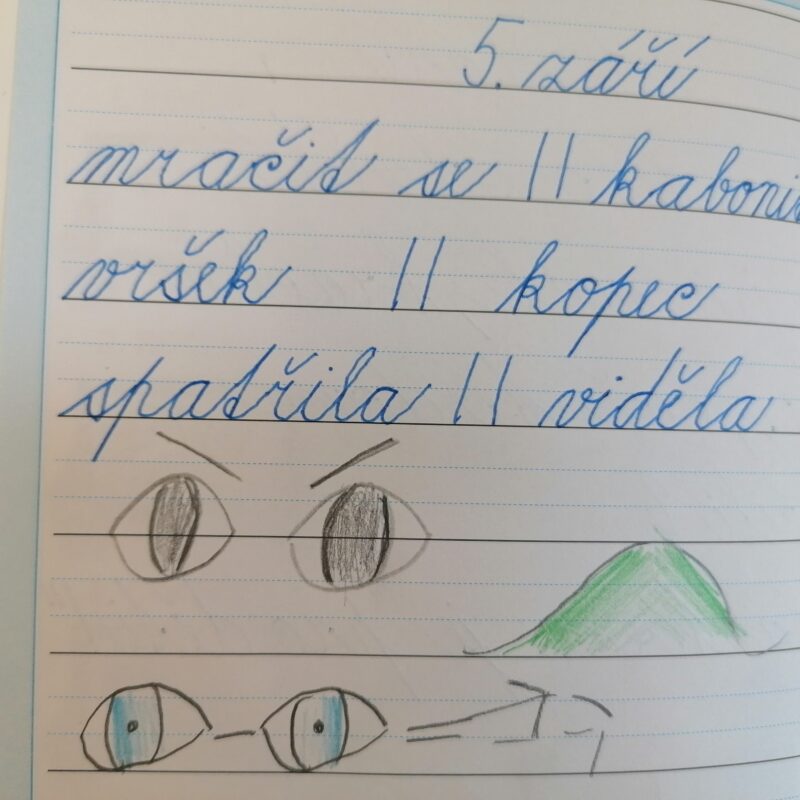 5. září
mračit se || kabonit
vršek || kopec
spatřila || viděla